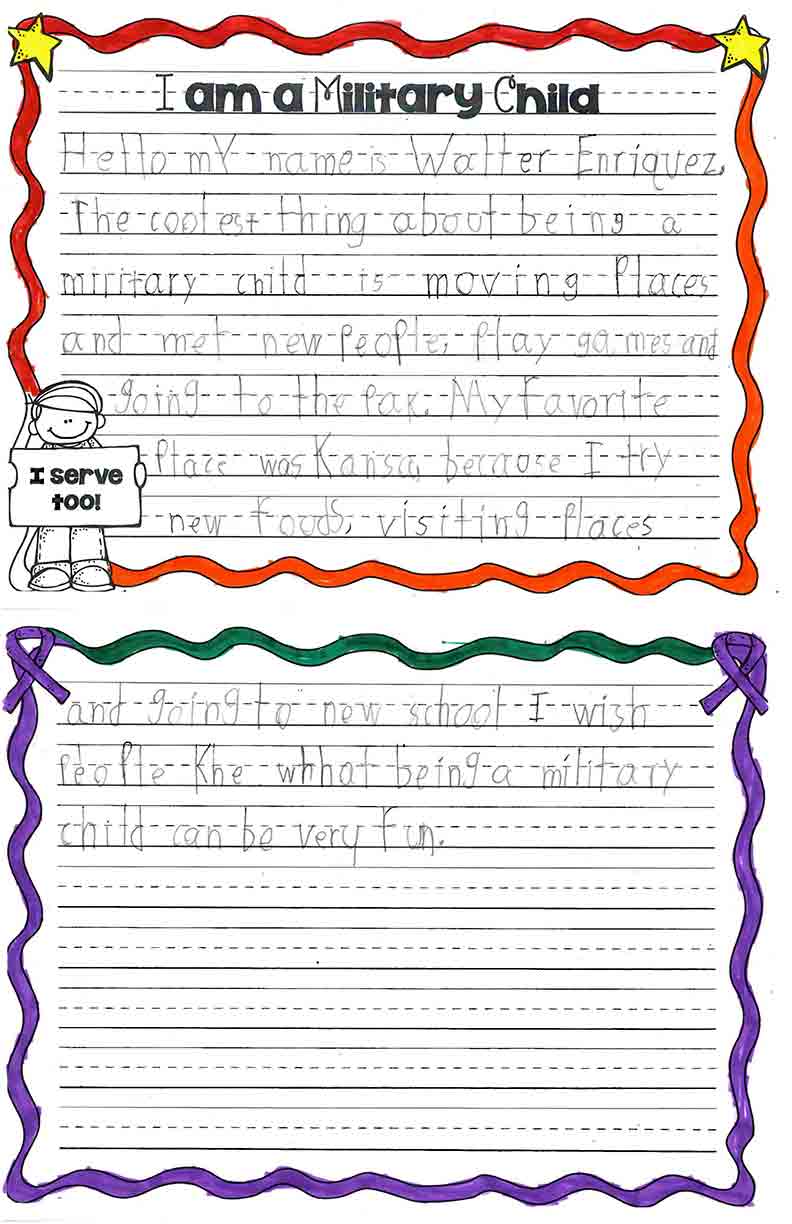 I am a Military Child
Hello my name is Walter Enriquez.
The coolest thing about being a
military child is moving Places
and met new People, play games and
going to the Pak. My favorite
I serve
too!
Place was Kansa, because I try
new foods, visiting Places
and going to new school I wish
People khe whhat being a military
child can be very fun.